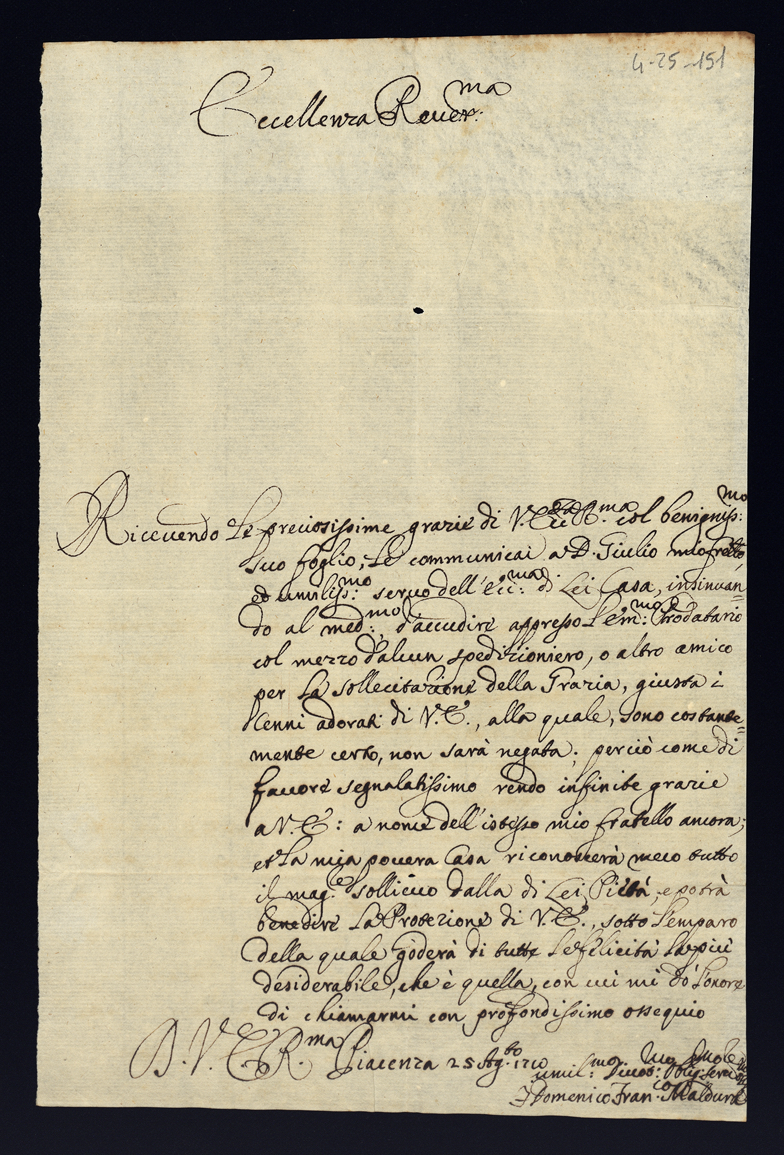 4-25-151
Eccellenza Reuer.ma
Riceuendo Le preciosissime grazie di V. Ecc.za R.ma col benigniss:mo
suo foglio, Le communicai a D. Giulio mio fr̃ello,
ed umiliss:mo seruo dell'ecc:ma di Lei Casa, insinuan=
do al med:mo, d'accudire appresso l'em:mo Prodatario
col mezzo d'alcun spedizioniero, o altro amico
per La sollecitazione della Grazia, giusta i
Cenni adorati di V. E., alla quale, sono costante=
mente certo, non sarà negata; perciò come di
fauore segnalatissimo rendo infinite grazie
a V. E: a nome dell'istesso mio fratello ancora;
et La mia pouera Casa riconoscerà meco tutto
il mag.e sollieuo dalla di Lei Pietà, e potrà
benedire La Protezione di V. E., sotto l'emparo
della quale goderà di tutte Le felicità La più
desiderabile, che è quella, con cui mi dò l'onore
di chiamarmi con profondissimo ossequio
D. V. E. R.ma Piacenza 25 Ag.to 1710
umil:mo
Domenico Fran.co Maldura